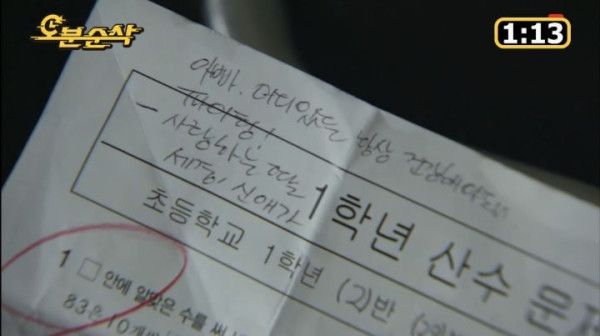 오분순삭
1:13
아빠. 어디있든 항상 건강해야
파이팅!
- 사랑하는 딸
세경, 신애가
1학년 산수 문
초등학교 1학년 (2)반
1 □ 안에 알맞은 수를 써
83은 10개